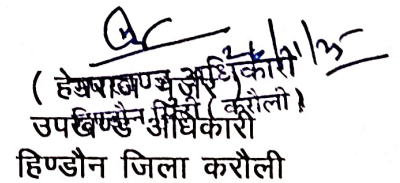 ( हेमराज गुर्जर )
उपखण्ड अधिकारी
हिण्डौन सिटी ( करौली )
उपखण्ड अधिकारी
हिण्डौन जिला करौली